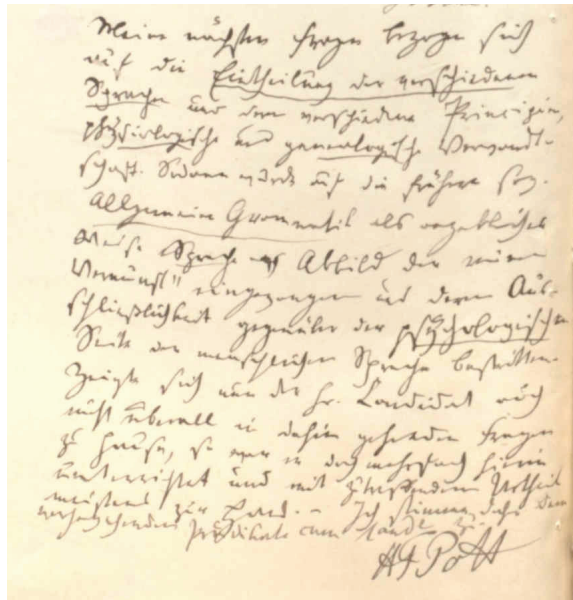 Meine nächsten Fragen bezogen sich
auf die Eintheilung der verschiedenen
Sprachen und deren verschiedene Principien,
physiologische und genealogische Verwandt-
schaft. Sodann wurde auf die frühere sog.
Allgemeine Grammatik als
Weise Sprache als Abbild der reinen
Vernunft" eingegangen und deren Aus-
schließlichkeit gegenüber der psychologischen
Seite der menschlichen Sprache bestritten.
Zeigte sich nun der Hr. Candidat auch
nicht überall in dahin gehenden Fragen
zu Hause, so war er doch mehrfach hierin
unterrichtet und mit zutreffendem Urtheil
meistens zur Hand. – Ich stimme daher dem
Prädikate cum laude zu.
AFPott